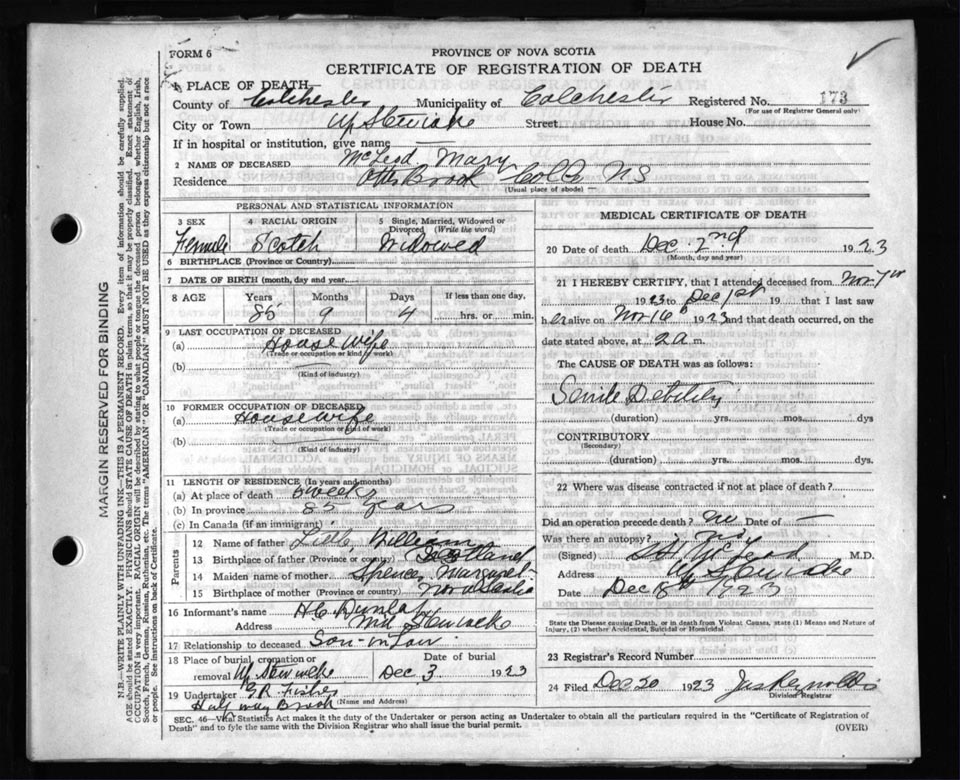 FORM 6
PROVINCE OF NOVA SCOTIA
CERTIFICATE OF REGISTRATION OF DEATH
1 PLACE OF DEATH
County of Colchester Municipality of Colchester Registered No. 173
(For use of Registrar General only)
City or Town Up Stewiacke Street House No.
If in hospital or institution, give name —
2 NAME OF DECEASED McLeod Mary
Residence Otter Brook Col Co NS
(Usual place of abode) —
PERSONAL AND STATISTICAL INFORMATION
3 SEX Female
4 RACIAL ORIGIN Scotch
5 Single, Married, Widowed or Divorced (Write the word) Widowed
6 BIRTHPLACE (Province or Country)
7 DATE OF BIRTH (month, day and year)
8 AGE Years 85 Months 9 Days 4 If less than one day, hrs. or min.
9 LAST OCCUPATION OF DECEASED
(a) House wife
(Trade or occupation or kind of work)
(b)
(Kind of industry)
10 FORMER OCCUPATION OF DECEASED
(a) House wife
(Trade or occupation or kind of work)
(b)
(Kind of industry)
11 LENGTH OF RESIDENCE (In years and months)
(a) At place of death weeks
(b) In province 85 years
(c) In Canada (if an immigrant)
Parents
12 Name of father William
13 Birthplace of father (Province or country) Scotland
14 Maiden name of mother Spencer Margaret
15 Birthplace of mother (Province or country) Nova Scotia
16 Informant's name H C Dunlap
Address Mid Stewiacke
17 Relationship to deceased Son in Law
18 Place of burial, cremation or removal Up Stewiacke Date of burial Dec 3 1923
19 Undertaker G R Fisher
(Name and Address)
Half way Brook
MEDICAL CERTIFICATE OF DEATH
20 Date of death Dec 2nd 1923
(Month, day and year)
21 I HEREBY CERTIFY, that I attended deceased from Nov 7th
1923 to Dec 1st 19 that I last saw
her alive on Nov 16th 1923 and that death occurred, on the
date stated above, at 2 a m.
The CAUSE OF DEATH was as follows:
Senile Debility
(duration) yrs. mos. dys
CONTRIBUTORY
(Secondary)
(duration) yrs. mos. dys
22 Where was disease contracted if not at place of death?
Did an operation precede death? No Date of —
Was there an autopsy? No
(Signed) McLeod M.D.
Address Up Stewiacke
Date Dec 8th 1923
State the Disease Causing Death, or in death from Violent Causes, state (1) Means and Nature of
Injury, (2) whether Accidental, Suicidal or Homicidal.
23 Registrar's Record Number
24 Filed Dec 20 1923 Jas Reynolds
Division Registrar
SEC. 46—Vital Statistics Act makes it the duty of the Undertaker or person acting as Undertaker to obtain all the particulars required in the "Certificate of Registration of
Death" and to fyle the same with the Division Registrar who shall issue the burial permit.
(OVER)
MARGIN RESERVED FOR BINDING
N.B.—WRITE PLAINLY WITH UNFADING INK—THIS IS A PERMANENT RECORD. Every item of information should be carefully supplied.
AGE should be stated EXACTLY. PHYSICIANS should STATE CAUSE OF DEATH in plain terms, so that it may be properly classified. Exact statement of
OCCUPATION is very important. RACIAL ORIGIN will be described by stating to what people or tongue the deceased person belonged whether English, Irish,
Scotch, French, German, Russian, Ruthenian, etc. The terms "AMERICAN" OR "CANADIAN" MUST NOT BE USED as they express citizenship but not a race
or people. See instructions on back of Certificate.